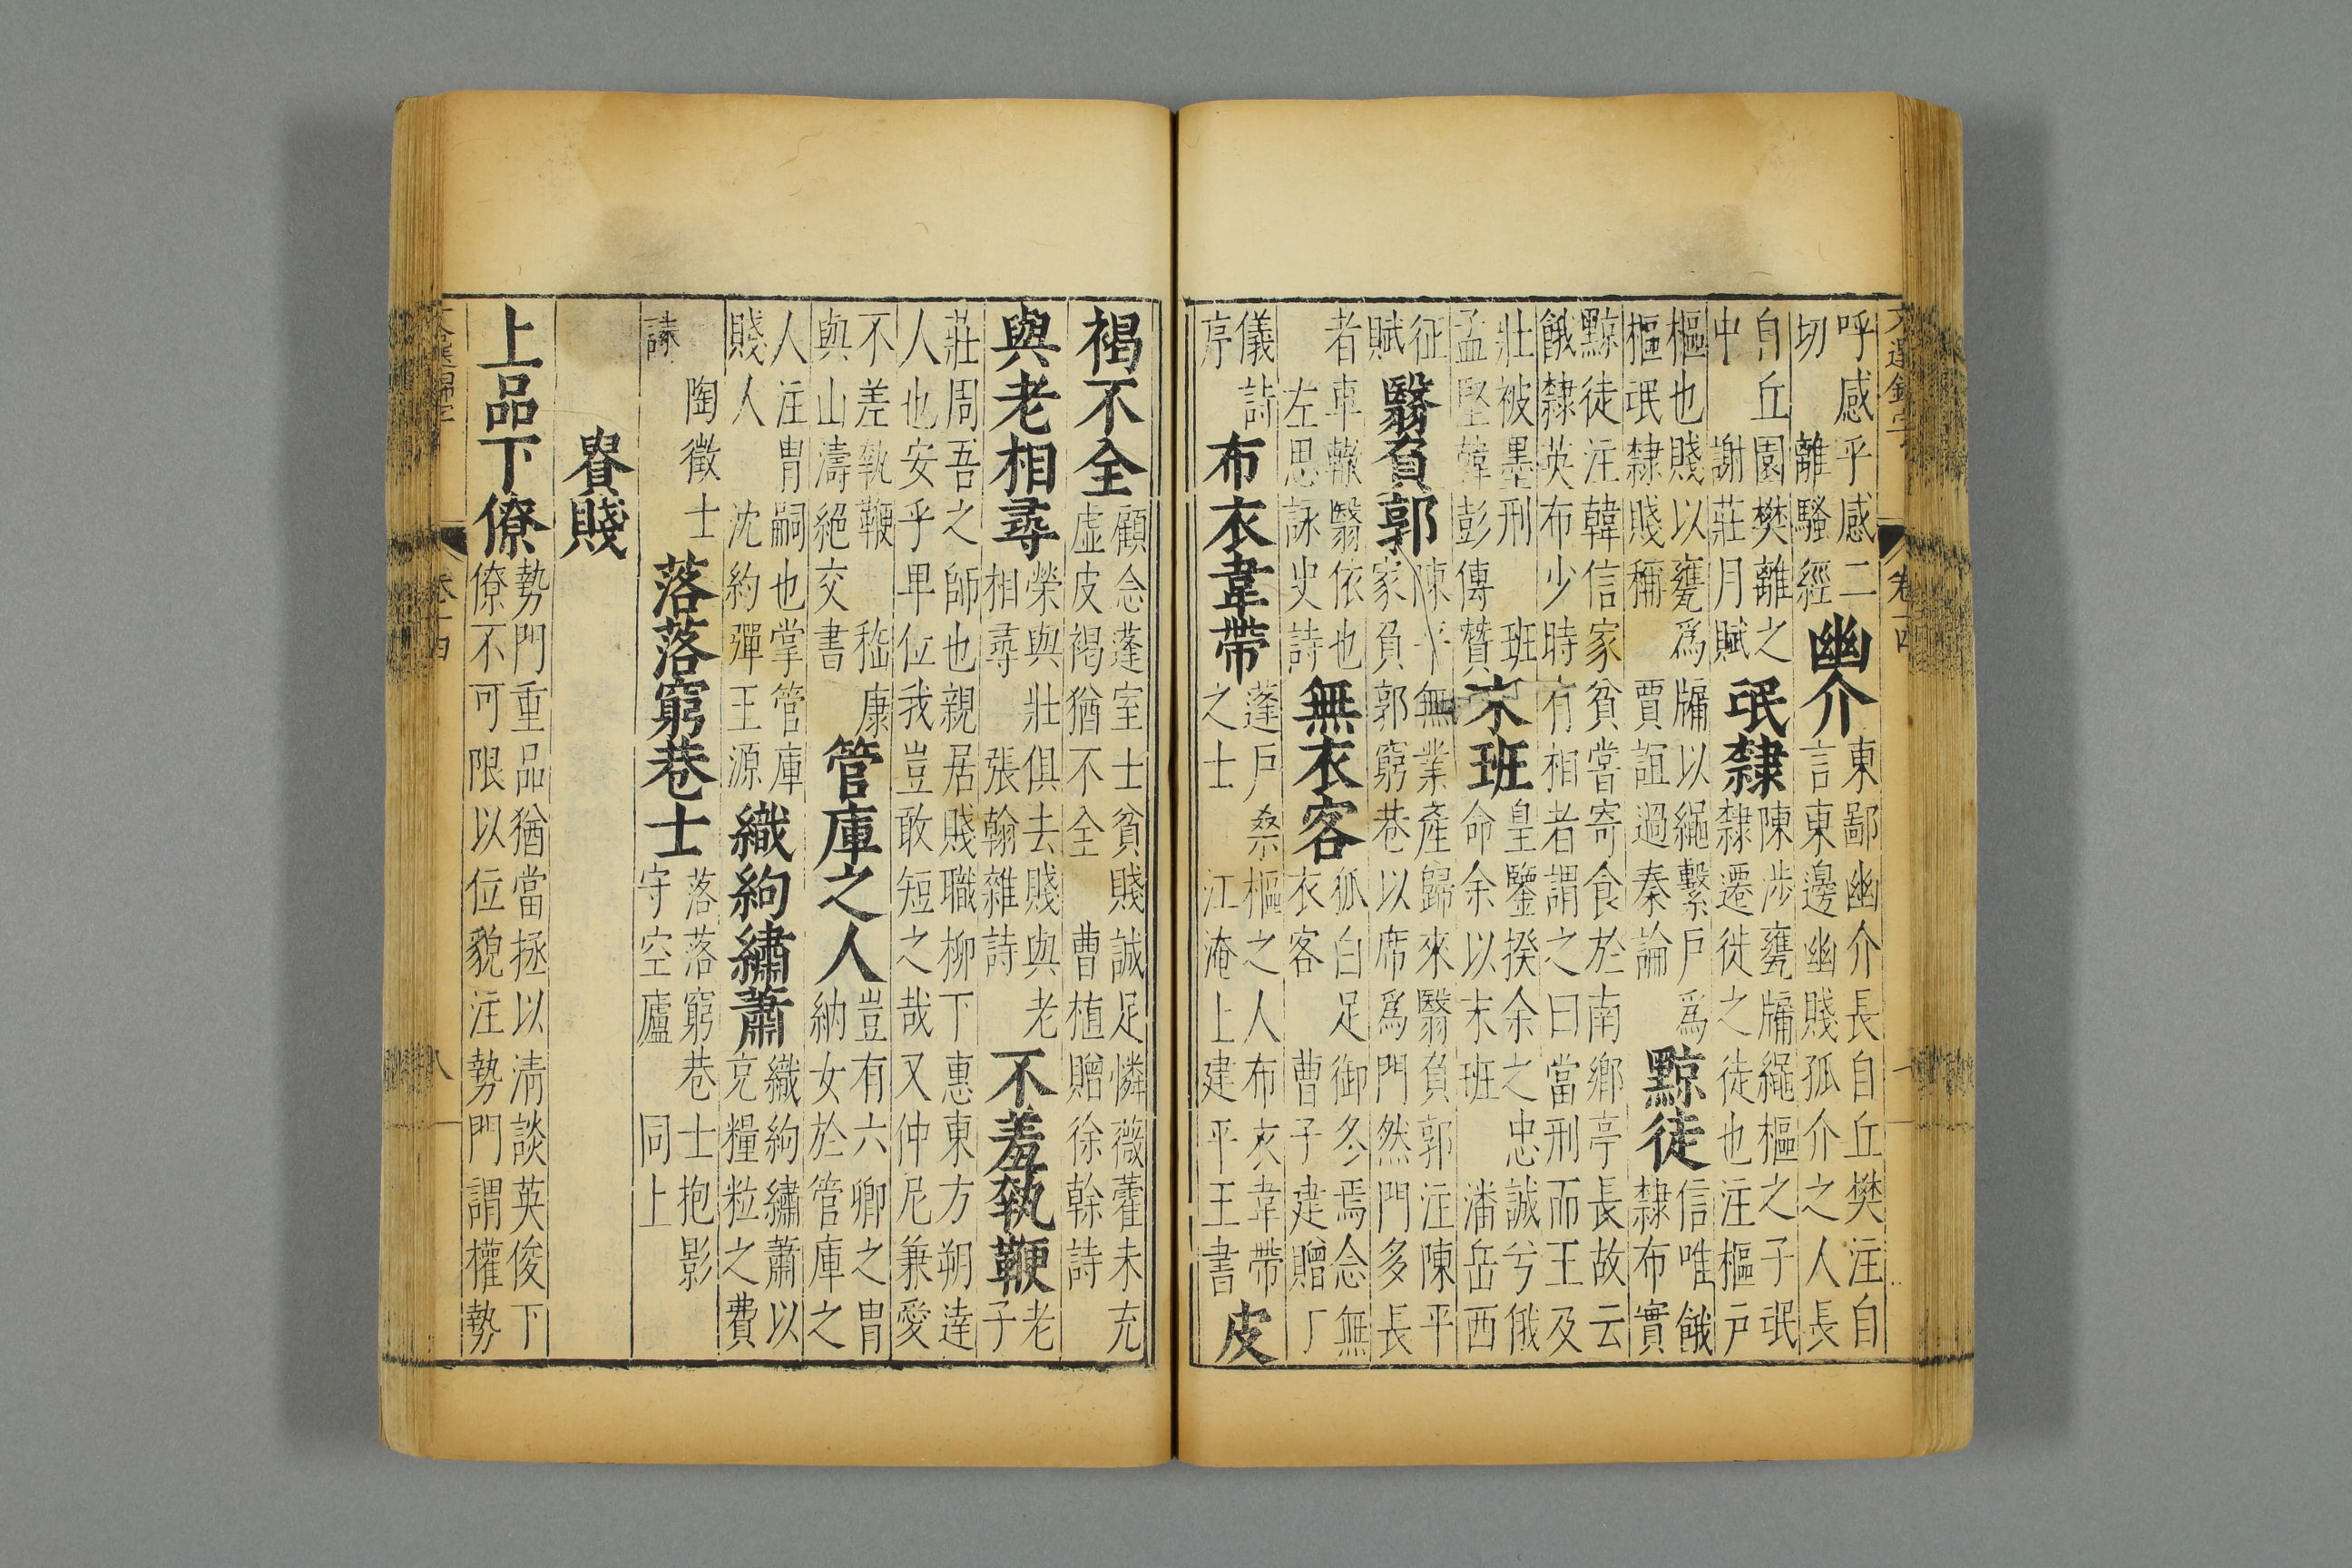 文選錦字 卷十四
呼感乎感二
切 離騷經
幽介
東鄙幽介長自丘樊注自
言東邊幽賤孤介之人長
自丘園樊離之
中 謝莊月賦
氓隸
陳涉甕牖繩樞之子氓
隸遷徙之徒也注樞戶
樞也賤以甕爲牖以繩繫戶爲
樞氓隸賤稱 賈誼過秦論
黥徒
信唯餓
隸布實
黥徒注韓信家貧嘗寄食於南鄉亭長故云
餓隸英布少時有相者謂之曰當刑而王及
壯被墨刑 班
孟堅韓彭傳贊
末班
皇鑒揆余之忠誠兮俄
命余以末班 潘岳西
征
賦
翳負郭
陳平無業產歸來翳負郭注陳平
家負郭窮巷以席爲門然門多長
者車轍翳依也
左思詠史詩
無衣客
狐白足御冬焉念無
衣客 曹子建贈丁
儀詩
序
布衣韋帶
蓬戶桑樞之人布衣韋帶
之士 江淹上建平王書
皮
褐不全
顧念蓬室士貧賤誠足憐薇藿未充
虛皮褐猶不全 曹植贈徐幹詩
與老相尋
榮與壯俱去賤與老
相尋 張翰雜詩
不羞執鞭
老
子
莊周吾之師也親居賤職柳下惠東方朔達
人也安乎卑位我豈敢短之哉又仲尼兼愛
不差執鞭 嵇康
與山濤絕交書
管庫之人
豈有六卿之胄
納女於管庫之
人注胄嗣也掌管庫
賤人 沈約彈王源
織絇繡蕭
織絇繡蕭以
充糧粒之費
陶徵士
誄
落落窮巷士
落落窮巷士抱影
守空廬 同上
貴賤
上品下僚
勢門重品猶當拯以清談英俊下
僚不可限以位貌注勢門謂權勢
卷十四 八